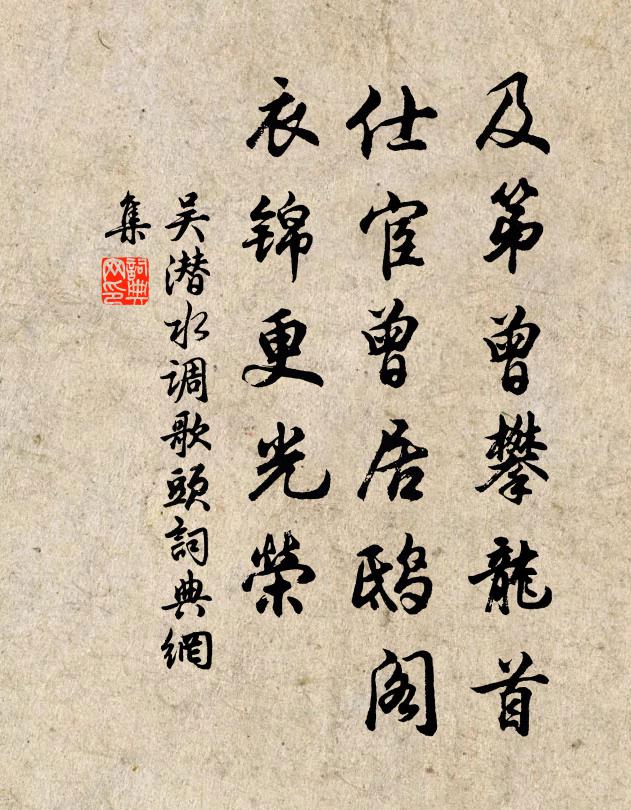 及第曾攀龍首
仕宦曾居鴟阁
衣锦更光榮
吴潜水调歌頭詞典網
集
詞典
网印